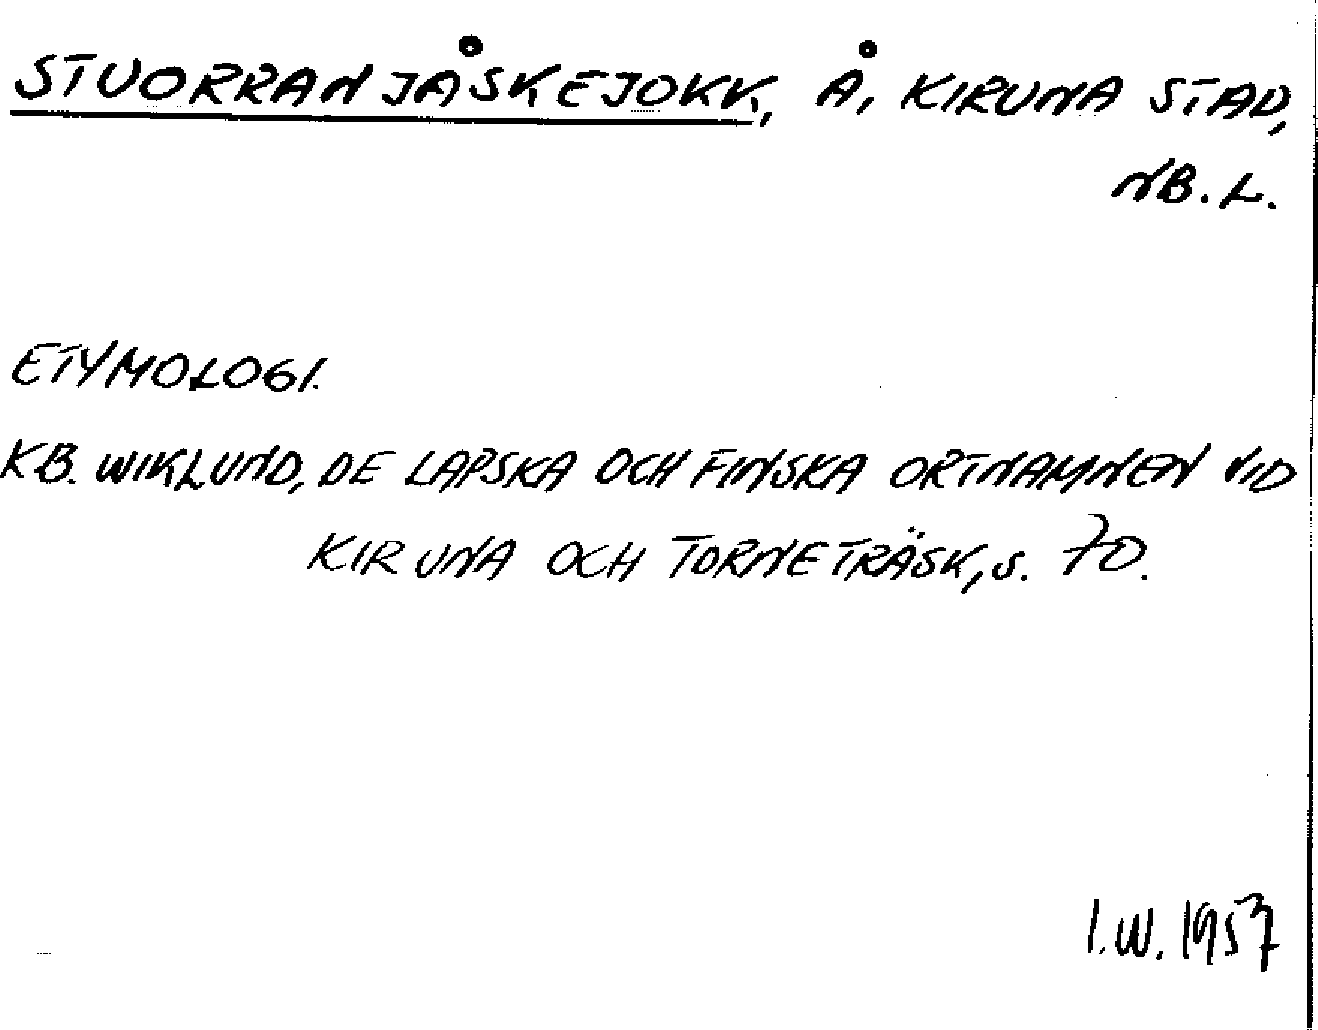 STUORRANJÅSKEJOKK, Å, KIRUNA STAD,
NB. L.
ETYMOLOGI.
KB. WIKLUND, DE LAPSKA OCH FINSKA ORTNAMNEN VID
KIRUNA OCH TORNETRÄSK, S. 70.
I.W. 1957